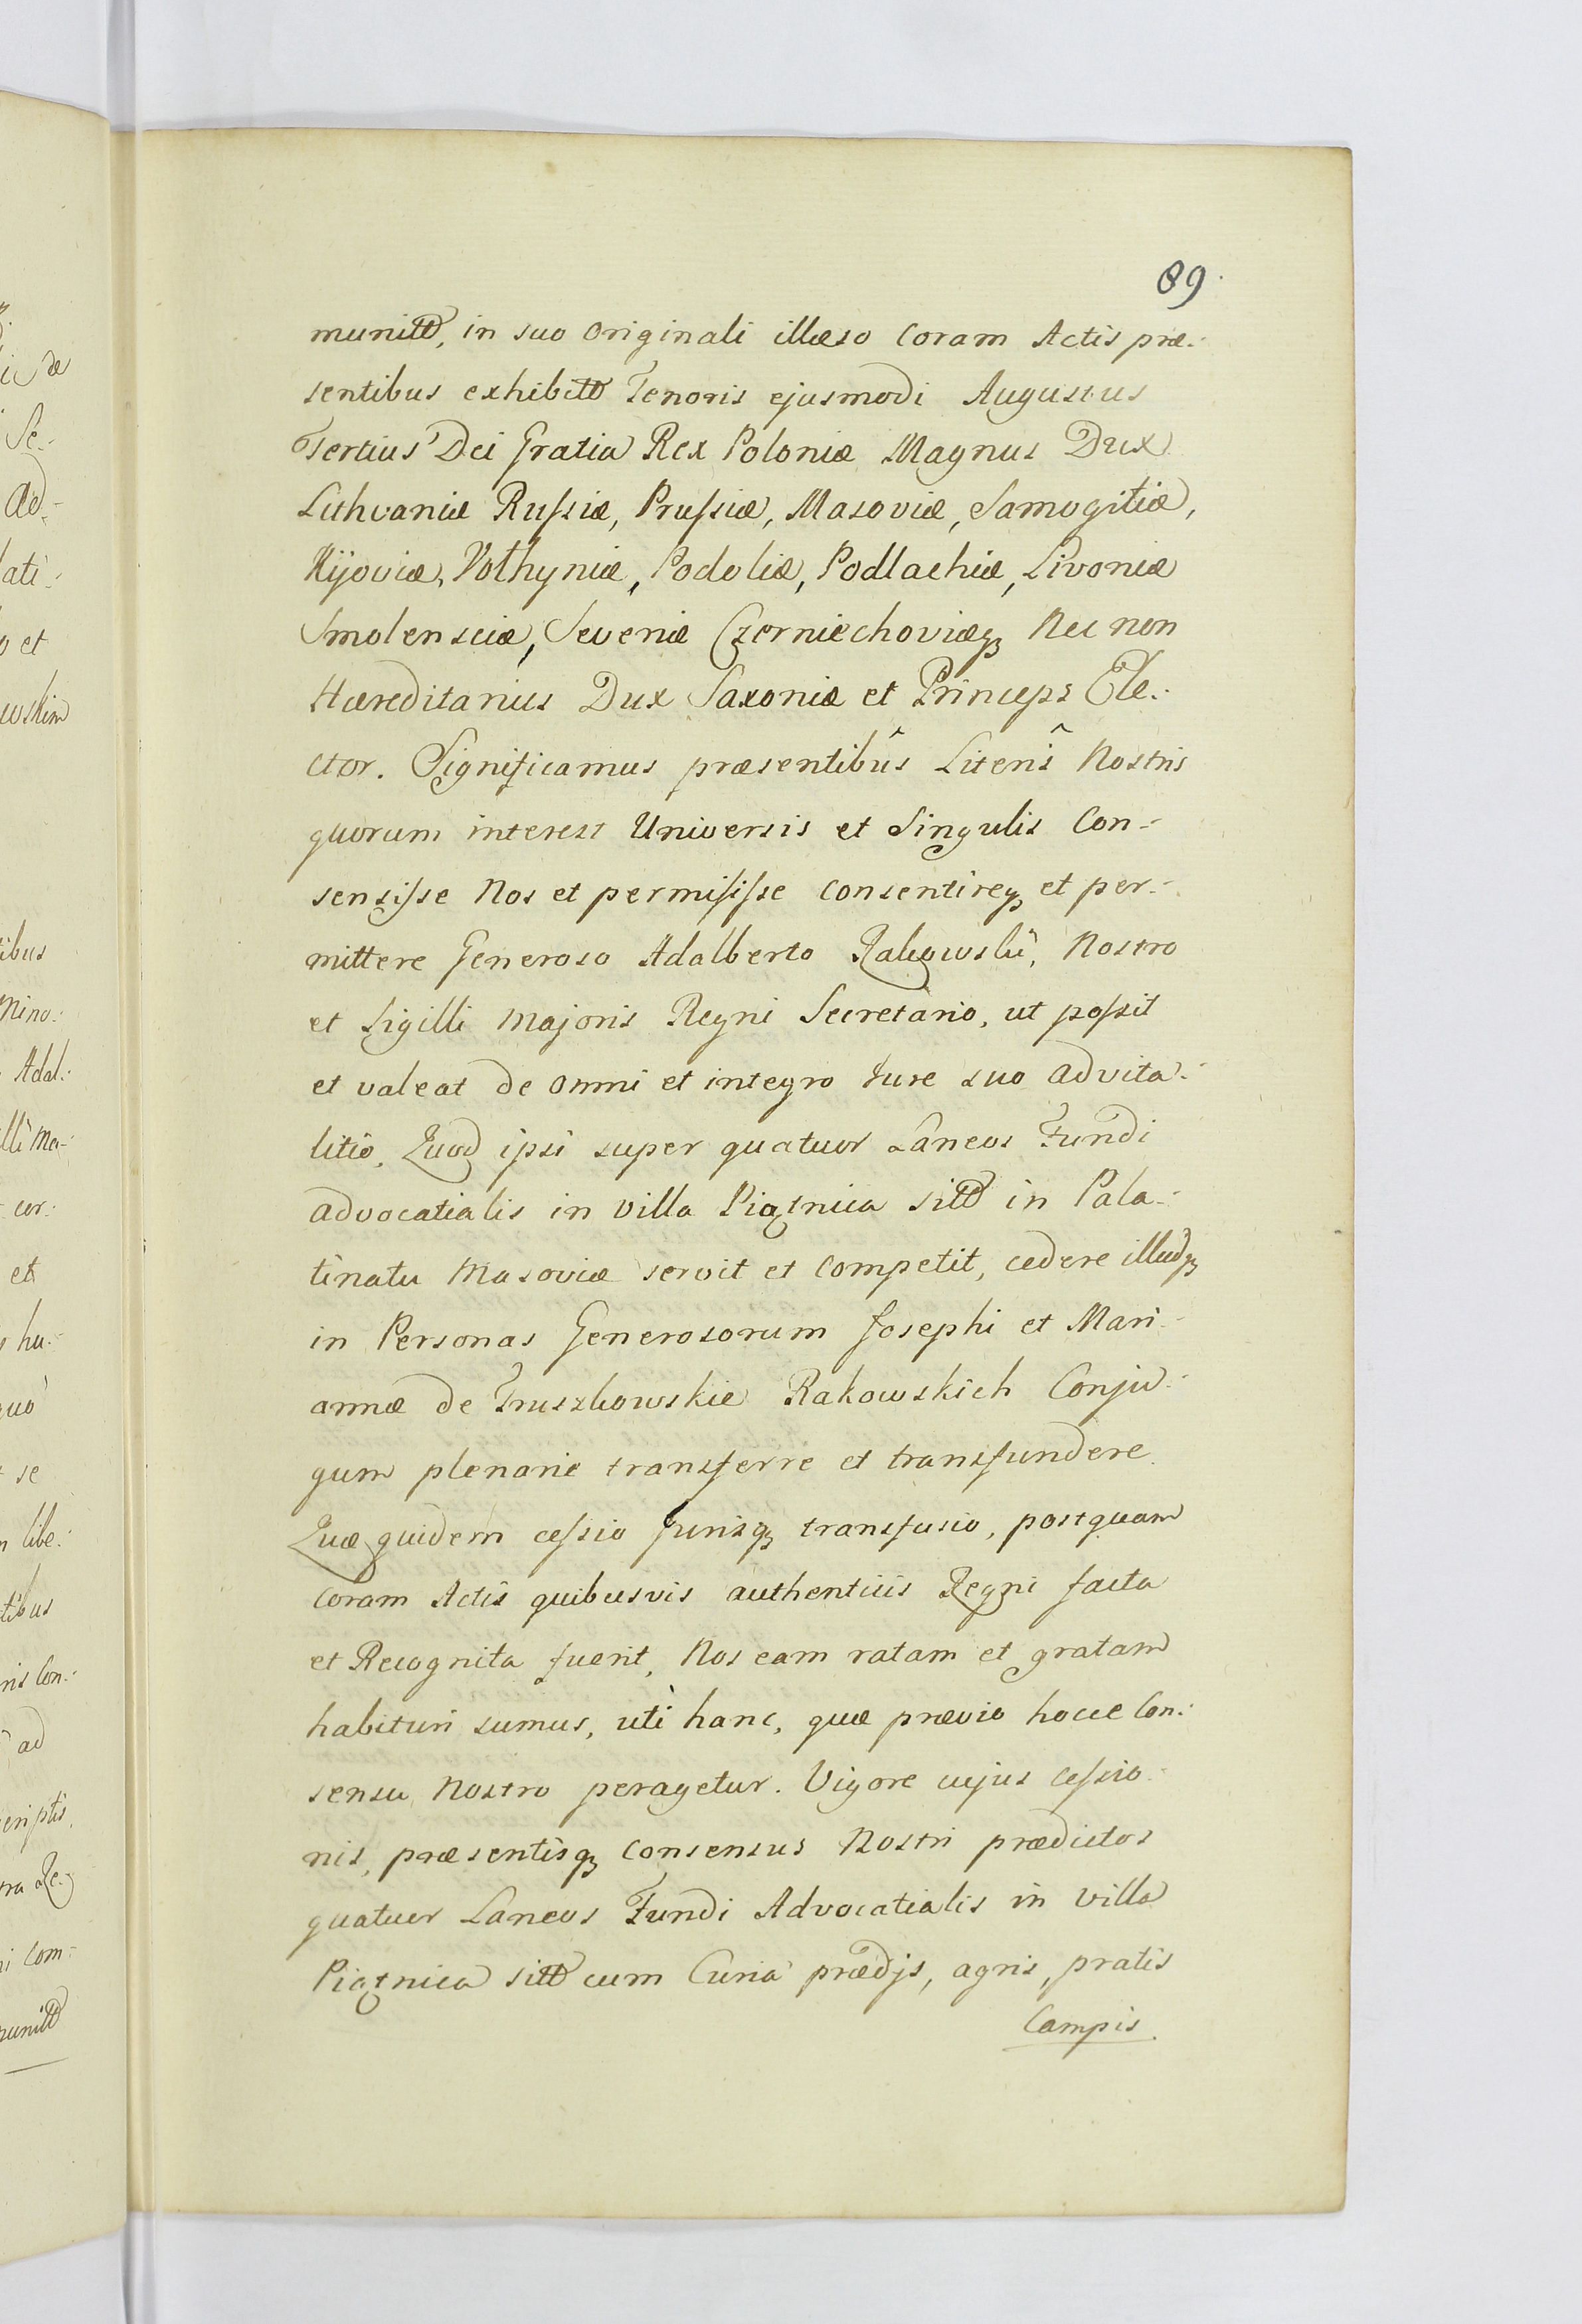 89.
munitt, in suo originali illæso Coram Actis præ-
sentibus exhibitt Tenoris ejusmodi Augustus
Tertius Dei Gratia Rex Poloniæ Magnus Dux
Lithvaniæ Russiæ, Prussiæ, Masoviæ, Samogitiæ,
Kijoviæ, Volhyniæ, Podoliæ, Podlachiæ, Livoniæ
Smolensciæ, Seveniæ Czerniechoviæq Nec non
Hæreditarius Dux Saxoniæ et Princeps Ele-
ctor. Significamus præsentibûs Literîs Nostris
quorum interest Universis et Singulis Con-
sensisse Nos et permisisse consentireq et per-
mittere Generoso Adalberto Rakowski, Nostro
et Sigilli Majoris Regni Secretario, ut possit
et valeat de omni et integro Jure suo advita-
litio, Quod ipsi super quatuor Laneos Fundi
advocatialis in villa Piątnica sitt in Pala-
tinatu Masoviæ servit et competit, cedere illudq
in Personas Generosorum Josephi et Mari-
annæ de Truszkowskie Rakowskich Conju-
gum plenarie transferre et transfundere.
Quæ quidem cessio Jurisq transfusio, postquam
Coram Actis quibusvis authenticis Regni facta
et Recognita fuerit, Nos eam ratam et gratam
habituri sumus, uti hanc, quæ prævio hocce Con-
sensu Nostro peragetur. Vigore cujus cessio-
nis, præsentisq Consensus Nostri prædictos
quatuor Laneos Fundi Advocatialis in villa
Piątnica sitt cum Curia prædjs, agris, pratis
Campis.